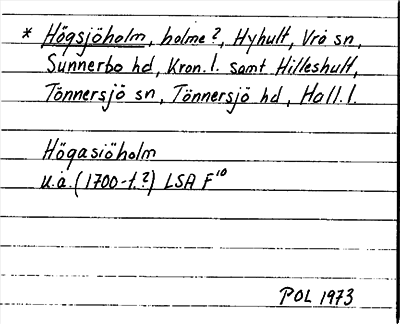 * Högsjöholm, holme?, Hyhult, Vrå sn,
Sunnerbo hd, Kron.l. samt Hilleshult,
Tönnersjö sn, Tönnersjö hd, Hall.l.
Högasiöholm
u.å. (1700-t.?) LSA F¹⁰
POL 1973